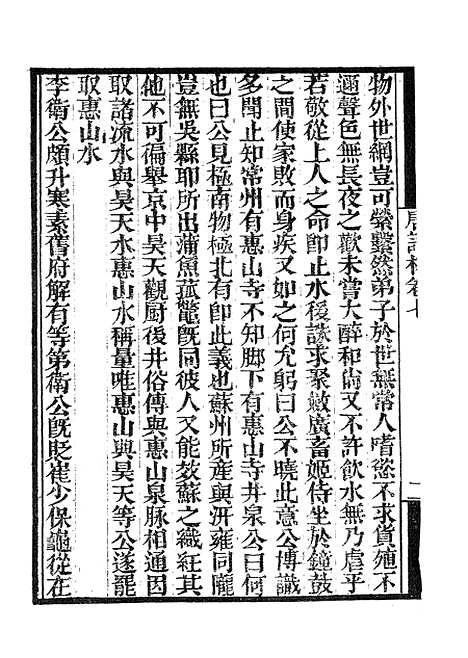 唐語林卷七
二
物外世網豈可縈繫然弟子於世無常人嗜慾不求貨殖不
邇聲色無長夜之歡未嘗大醉和尚又不許飲水無乃虐乎
若敬從上人之命即止水後誅求聚斂廣畜姬侍坐於鐘鼓
之間使家敗而身疾又如之何允躬曰公不曉此意公博識
多聞止知常州有惠山寺不知脚下有惠山寺井泉公曰何
也曰公見極南物極北有即此義也蘇州所產與汧雍同隴
豈無吳縣耶所出蒲魚菰鼈旣同彼人又能效蘇之織紅其
他不可徧舉京中昊天觀厨後井俗傳與惠山泉脉相通因
取諸流水與昊天水惠山水稱量唯惠山與昊天等公遂罷
取惠山水
李衛公頗升寒素舊府解有等第衛公旣貶崔少保龜從在